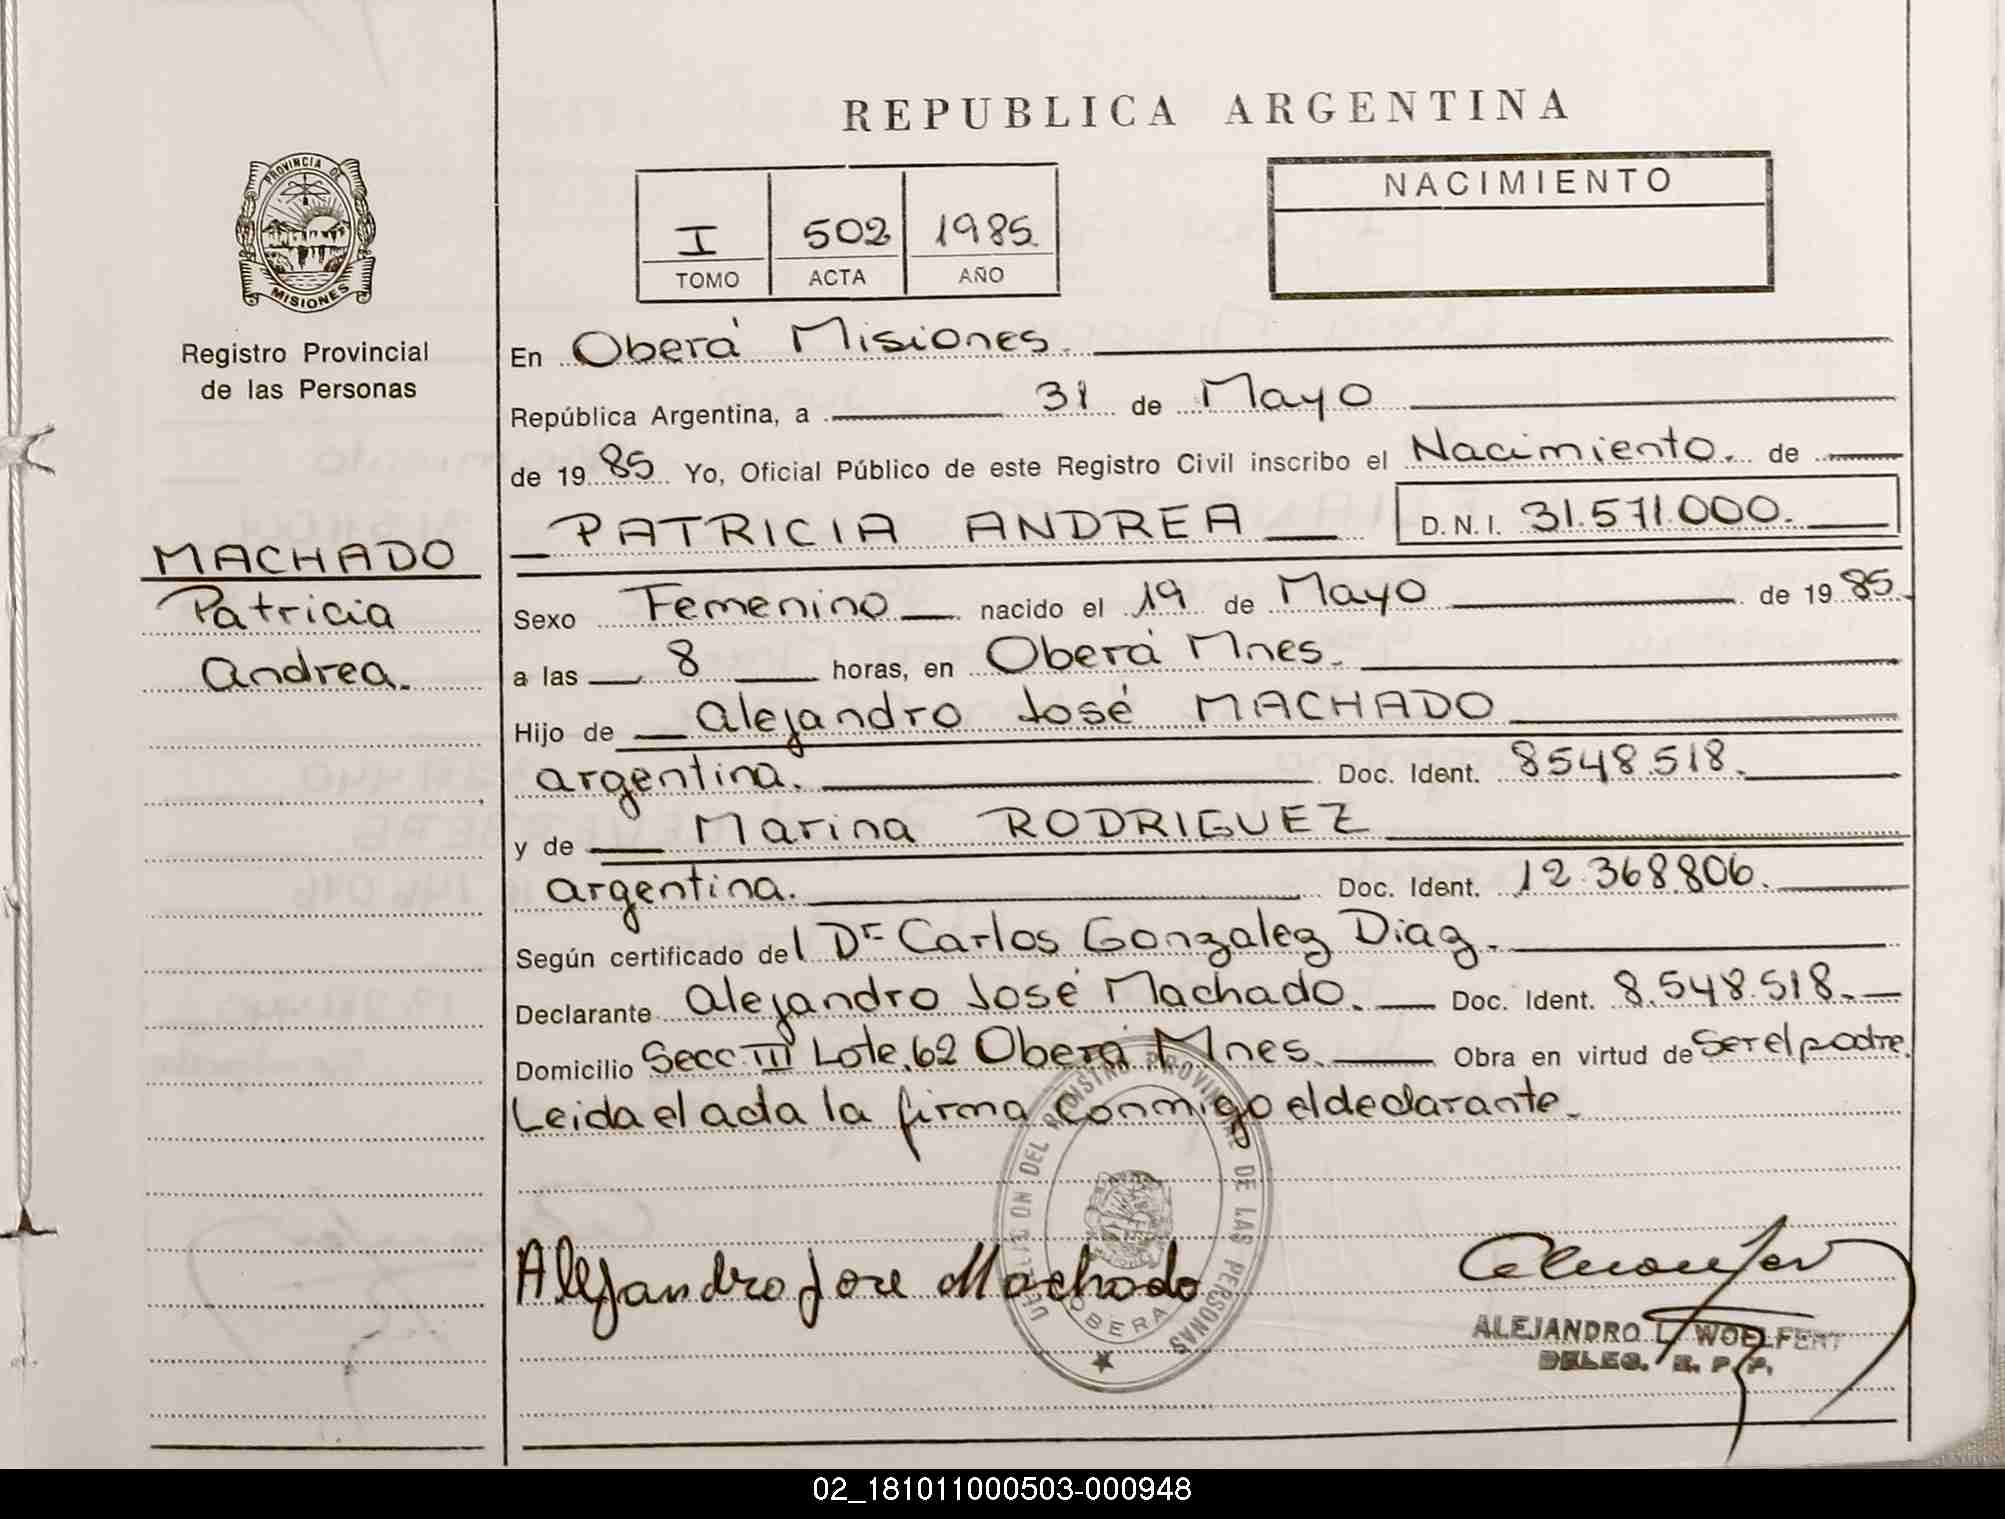 REPUBLICA ARGENTINA
PROVINCIA DE
MISIONES
Registro Provincial
de las Personas
I 502 1985
TOMO ACTA AÑO
NACIMIENTO
En Oberá Misiones.
República Argentina, a 31 de Mayo
de 1985 Yo, Oficial Público de este Registro Civil inscribo el Nacimiento. de
PATRICIA ANDREA D.N.I. 31.571.000.
MACHADO
Patricia
Andrea.
Sexo Femenino nacido el 19 de Mayo de 1985
a las 8 horas, en Oberá Mnes.
Hijo de Alejandro José MACHADO
argentina. Doc. Ident. 8548.518.
y de Marina RODRIGUEZ
argentina. Doc. Ident. 12.368.806.
Según certificado del Dr Carlos Gonzalez Diaz.
Declarante Alejandro José Machado. Doc. Ident. 8.548.518.
Domicilio Secc. III Lote.62 Oberá Mnes. Obra en virtud de Ser el padre.
Leida el acta la firma conmigo el declarante.
DEL REGISTRO PROVINCIAL DE LAS PERSONAS
OBERA
Alejandro Jose Machado
ALEJANDRO L. WOELFERT
DELEG. R. P. P.
02_181011000503-000948